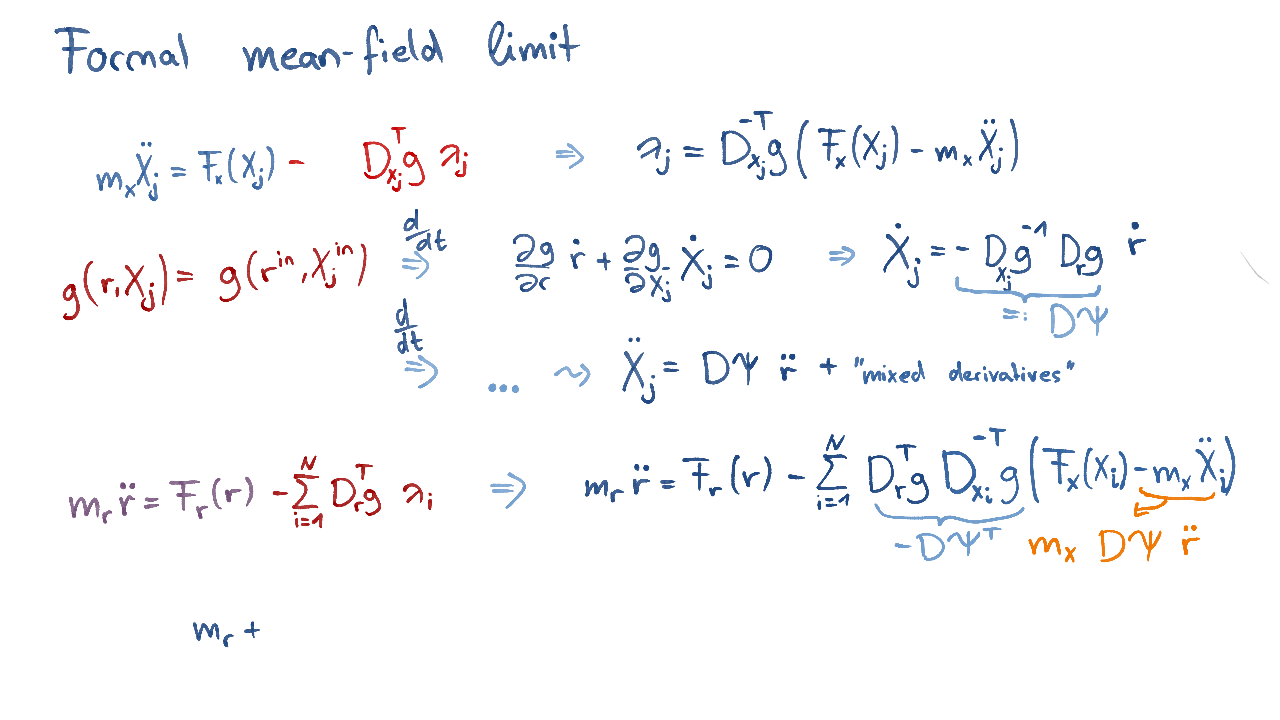 Formal mean-field limit
m_x Ẍ_j = F_x(X_j) - D_{x_j}^T g λ_j ⇒ λ_j = D_{x_j}^{-T} g (F_x(X_j) - m_x Ẍ_j)
g(r, X_j) = g(r^{in}, X_j^{in}) d/dt ⇒ ∂g/∂r ṙ + ∂g/∂X_j Ẋ_j = 0 ⇒ Ẋ_j = - D_{x_j} g^{-1} D_r g ṙ
=: DΨ
d/dt ⇒ ... ⇝ Ẍ_j = DΨ r̈ + "mixed derivatives"
m_r r̈ = F_r(r) - Σ_{i=1}^N D_r^T g λ_i ⇒ m_r r̈ = F_r(r) - Σ_{i=1}^N D_r^T g D_{x_i}^{-T} g (F_x(X_i) - m_x Ẍ_i)
-DΨ^T m_x DΨ r̈
m_r +